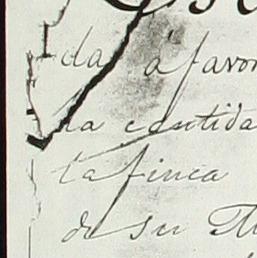 da á favor
la cantida
la finca
de su